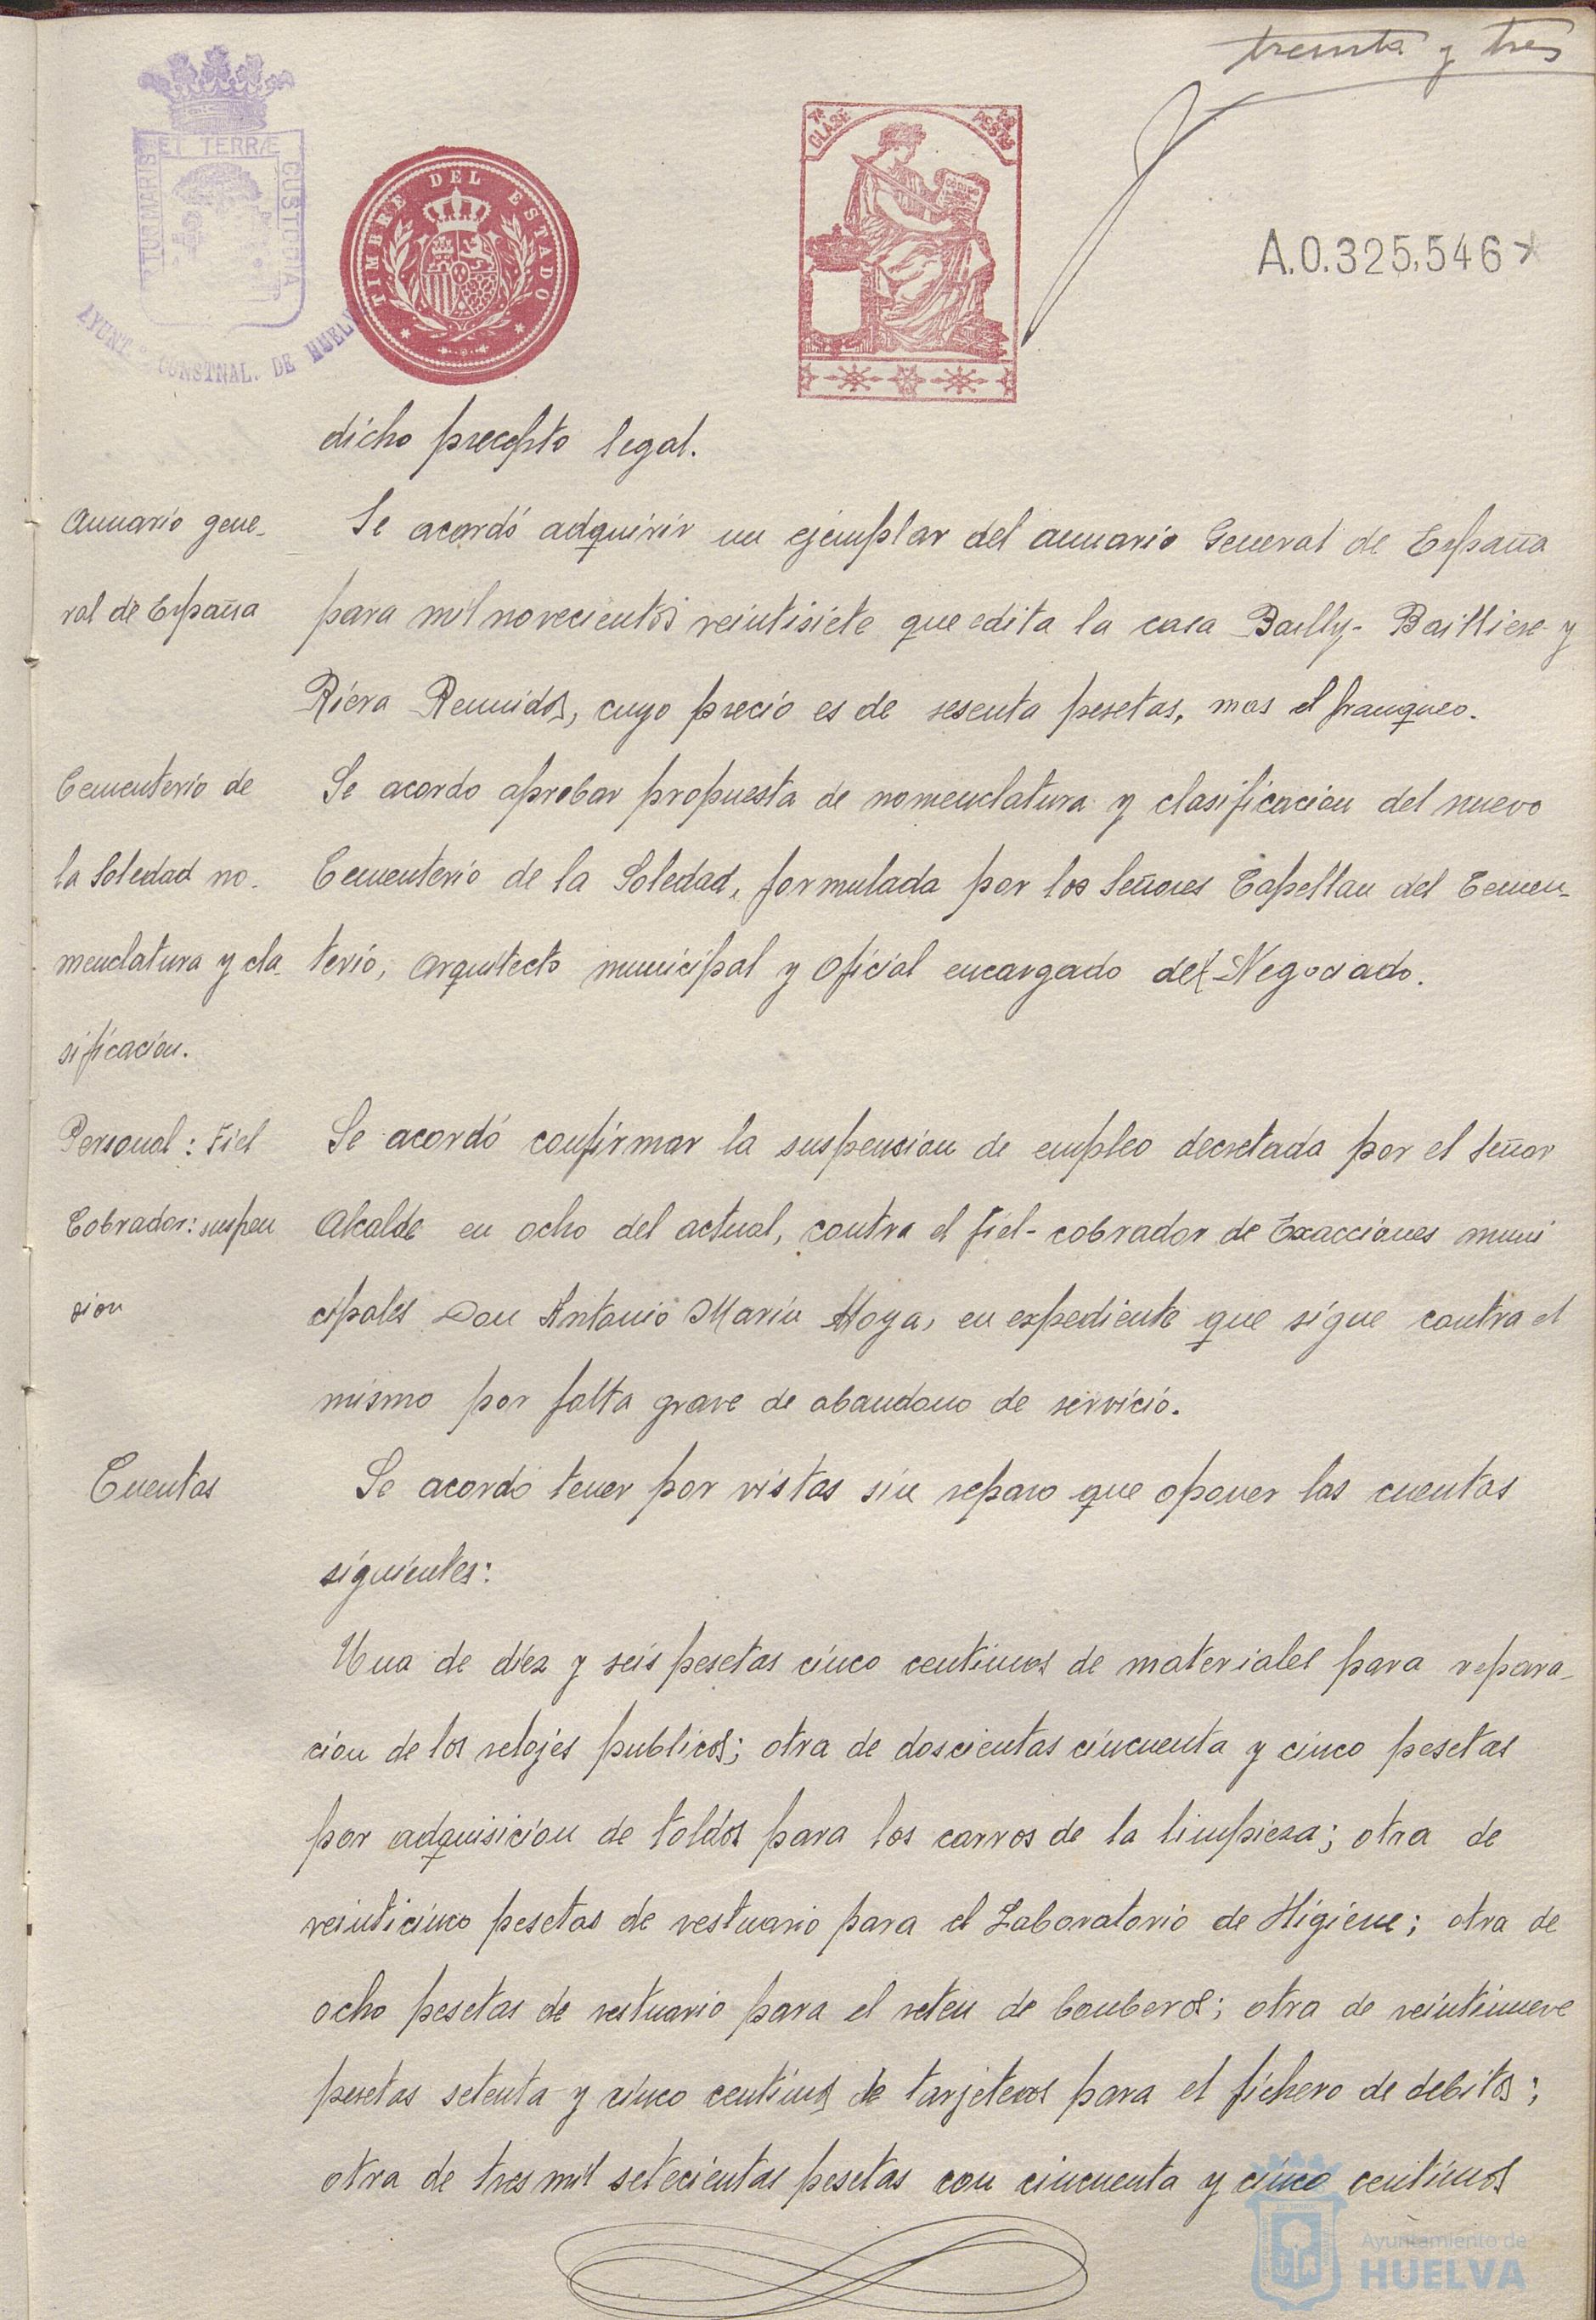 treinta y tres
PORTUM MARIS ET TERRÆ CUSTODIA
AYUNT CONSTNAL. DE HUELV
TIMBRE DEL ESTADO
7ª CLASE
PESETAS
A.0.325,546*
dicho precepto legal.
Anuario gene-
ral de España
Se acordó adquirir un ejemplar del anuario General de España
para mil novecientos veintisiete que edita la casa Bailly-Bailliere y
Riera Reunidos, cuyo precio es de sesenta pesetas, mas el franqueo.
Cementerio de
la Soledad no-
menclatura y cla
sificacion.
Se acordo aprobar propuesta de nomenclatura y clasificacion del nuevo
Cementerio de la Soledad, formulada por los Señores Capellan del Cemen-
terio, Arquitecto municipal y Oficial encargado del Negociado.
Personal: Fiel
Cobrador: suspen
sion
Se acordó confirmar la suspension de empleo decretada por el Señor
Alcalde en ocho del actual, contra el fiel-cobrador de Exacciones muni
cipales Don Antonio Marin Moya, en expediente que sigue contra el
mismo por falta grave de abandono de servicio.
Cuentas
Se acordó tener por vistas sin reparo que oponer las cuentas
siguientes:
Una de diez y seis pesetas cinco centimos de materiales para repara-
cion de los relojes publicos; otra de doscientas cincuenta y cinco pesetas
por adquisicion de toldos para los carros de la limpieza; otra de
veinticinco pesetas de vestuario para el Laboratorio de Higiene; otra de
ocho pesetas de vestuario para el reten de bomberos; otra de veintinueve
pesetas setenta y cinco centimos de tarjeteros para el fichero de debitos;
otra de tres mil setecientas pesetas con cincuenta y cinco centimos
Ayuntamiento de
HUELVA